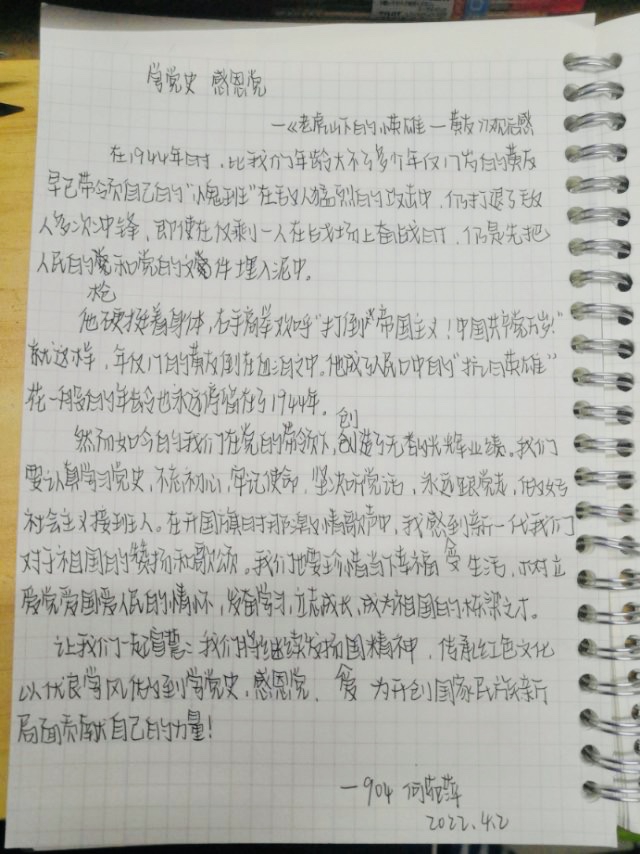 学党史 感恩党
—《老虎山下的小英雄—黄友》观后感
在1944年时,比我们年龄大不了多少个年仅17岁的黄友
早已带领自己的“小鬼班”在敌人猛烈的攻击中,仍打退了敌
人多次冲锋,即使在仅剩一人在战场上奋战时,仍是先把
人民的和党的文件埋入泥中。
枪
他硬挺着身体,右手高举欢呼“打倒帝国主义!中国共产党万岁!”
就这样,年仅17的黄友倒在血泊之中。他成了人民口中的“抗日英雄”
花一般的年龄也永远停留在了1944年。
创
然而如今的我们在党的带领下,创造了无香光辉业绩。我们
要认真学习党史,不忘初心,牢记使命,坚决听党话,永远跟党走,做好
社会主义接班人。在升国旗时那深情歌声中,我感到新一代我们
对于祖国的赞扬和歌颂。我们也要珍惜当下幸福生活,树立
爱党爱国爱人民的情怀,发奋学习,立志成长,成为祖国的栋梁之才。
让我们一起宣誓:我们将继续发扬国精神,传承红色文化
以优良学风做到学党史,感恩党、为开创国家民族新
局面贡献自己的力量!
—904 何
2022.4.2